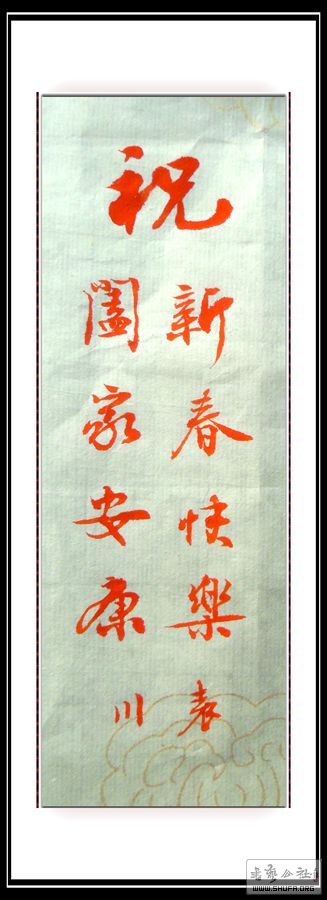 祝
新春快樂
闔家安康
袁川
WWW.SHUFA.ORG